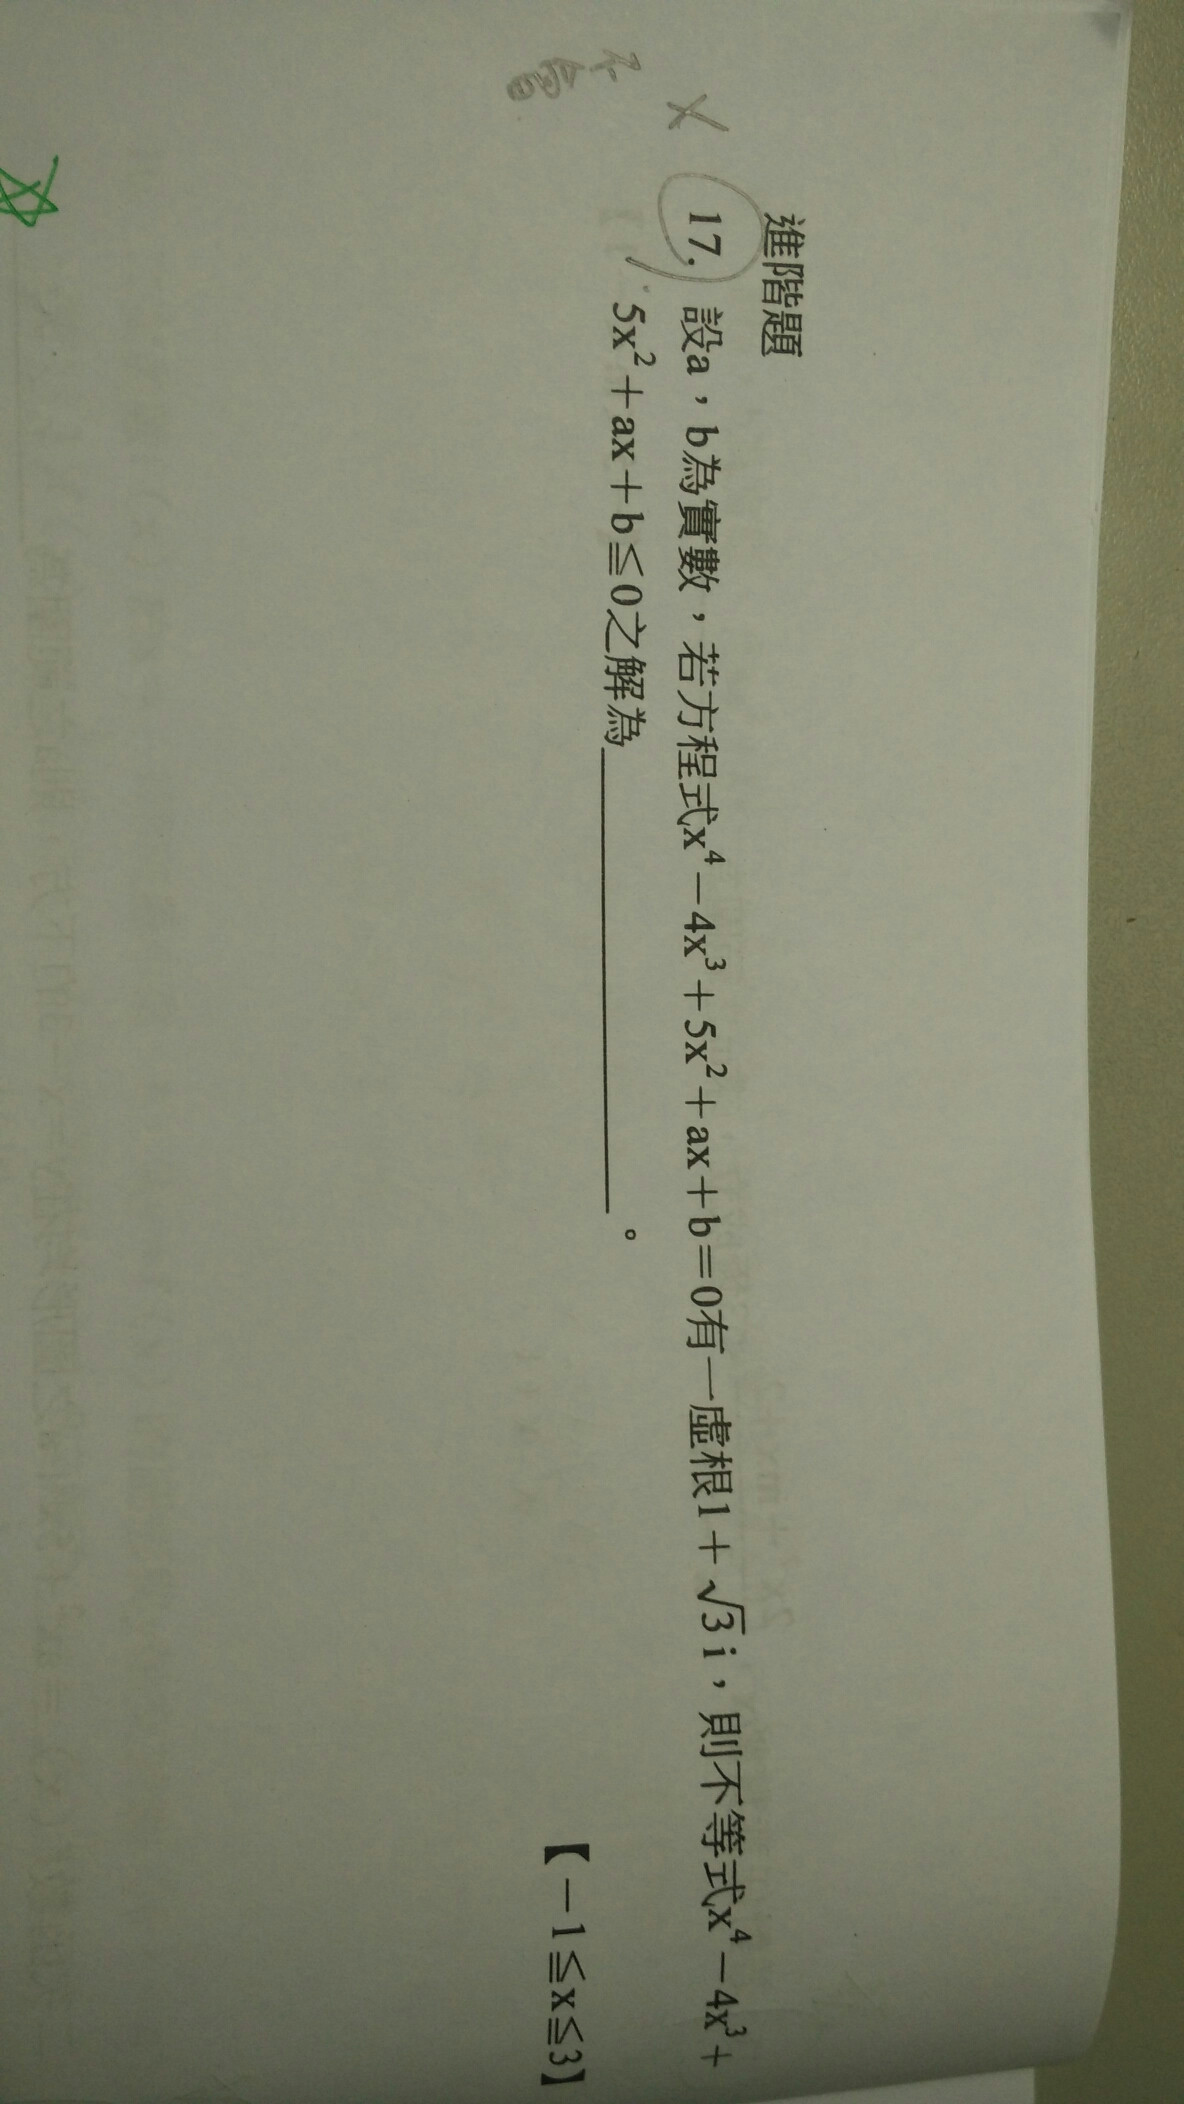 進階題
17. 設a，b為實數，若方程式x⁴－4x³＋5x²＋ax＋b＝0有一虛根1＋√3i，則不等式x⁴－4x³＋
5x²＋ax＋b≦0之解為＿＿＿＿＿＿＿＿。
【－1≦x≦3】
不會